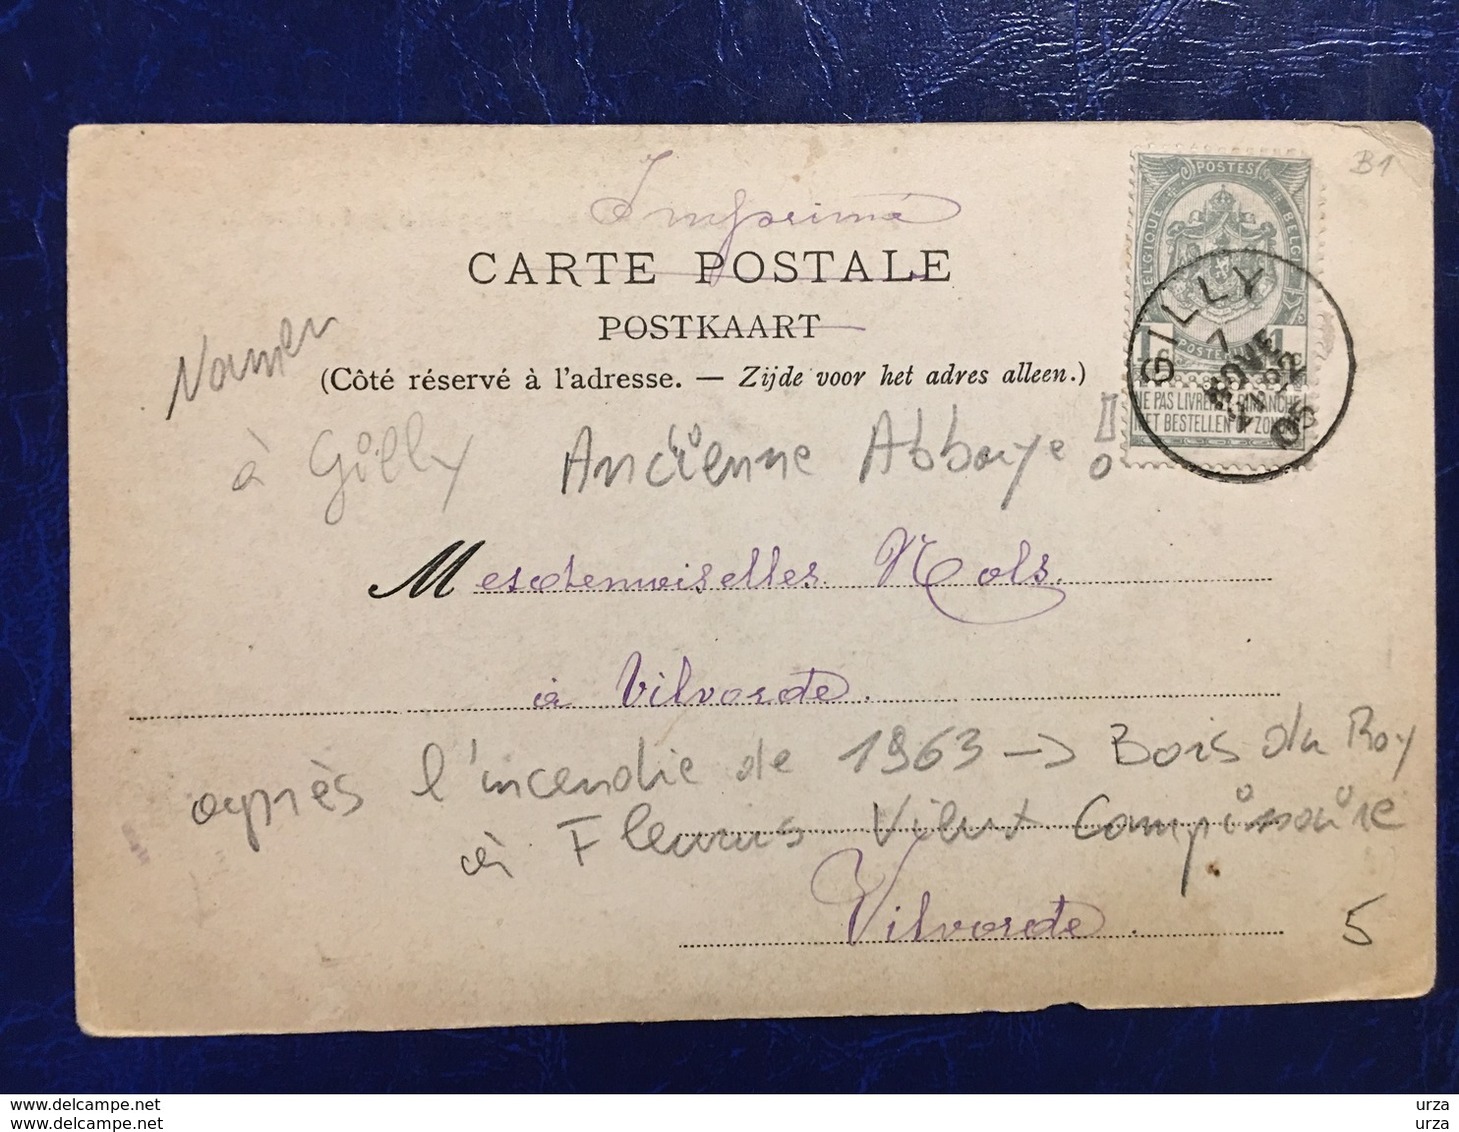 B1
Imprimé
CARTE POSTALE
POSTKAART
(Côté réservé à l'adresse. — Zijde voor het adres alleen.)
POSTES
BELGIQUE BELGIË
1 1
NE PAS LIVRER LE DIMANCHE
NIET BESTELLEN OP ZONDAG
GILLY
7
NOVE
05
Namen
à Gilly Ancienne Abbaye !
Mesdemoiselles Nols.
à Vilvorde.
après l'incendie de 1963 → Bois du Roy
à Fleurus
Vilvorde.
5
urza
urza